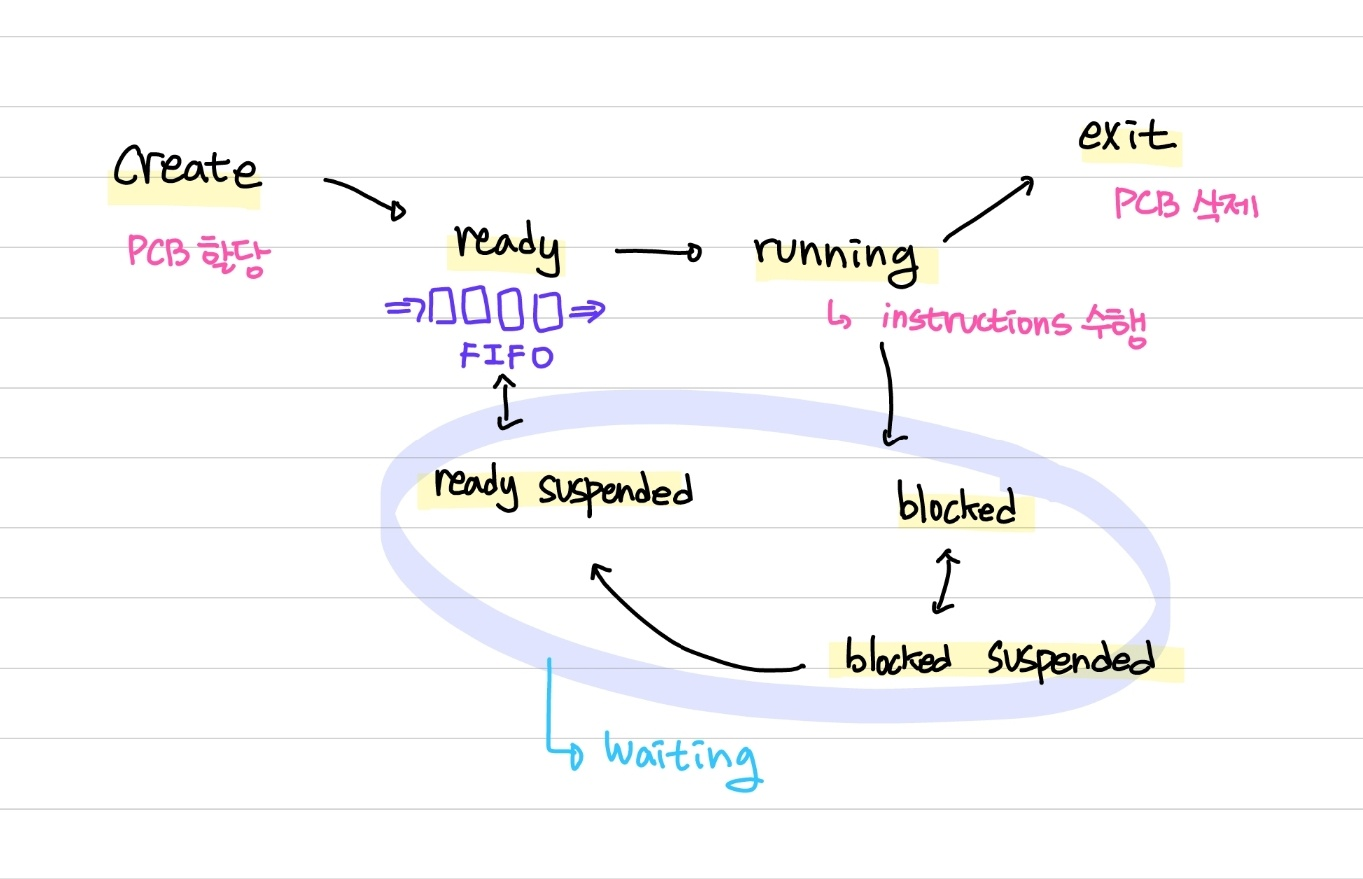 Create
PCB 할당
ready
FIFO
running
↳ instructions 수행
exit
PCB 삭제
ready suspended
blocked
blocked suspended
Waiting